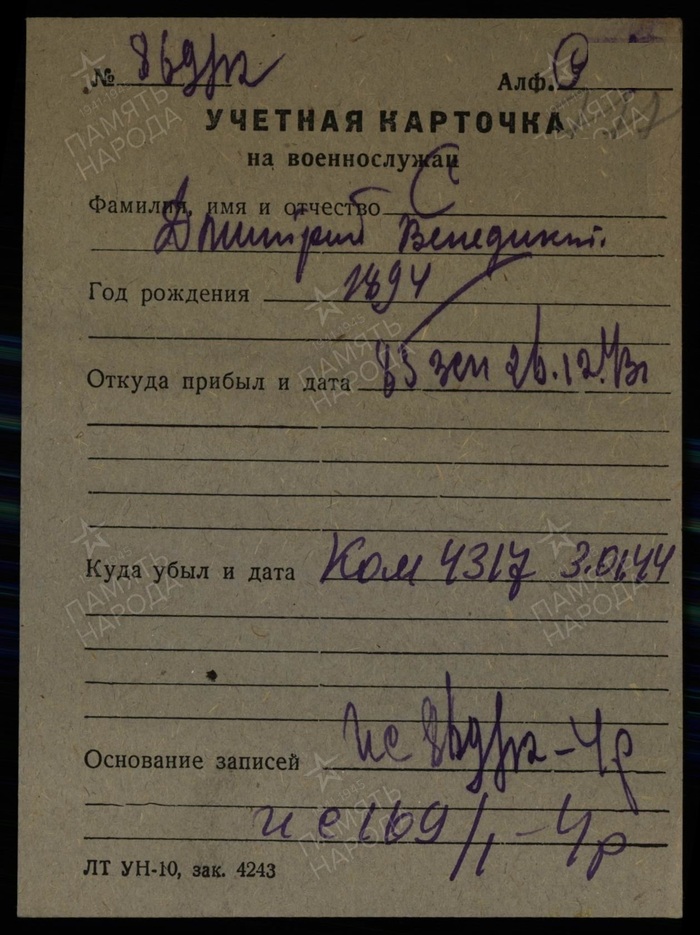 № 869/р2 Алф. С
УЧЕТНАЯ КАРТОЧКА
на военнослужащ
Фамилия, имя и отчество С
Дмитрий Венедикт.
Год рождения 1894
Откуда прибыл и дата 85 зсп 26.12.43г
Куда убыл и дата Ком 4317 3.01.44
Основание записей ис 869/р2 - 4р
ис 169/1 - 4р
ЛТ УН-10, зак. 4243
ПАМЯТЬ НАРОДА
ПАМЯТЬ НАРОДА
ПАМЯТЬ НАРОДА
ПАМЯТЬ НАРОДА
ПАМЯТЬ НАРОДА
ПАМЯТЬ НАРОДА